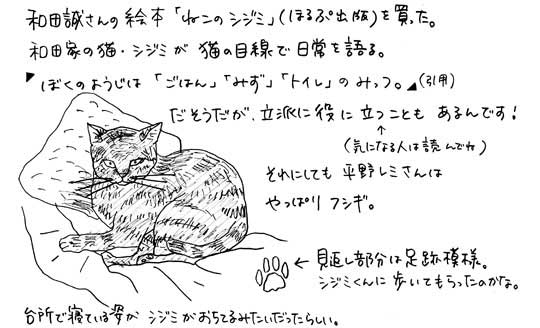 和田誠さんの絵本「ねこのシジミ」(ほるぷ出版)を買った。
和田家の猫・シジミが猫の目線で日常を語る。
ぼくのようじは「ごはん」「みず」「トイレ」のみっつ。(引用)
だそうだが、立派に役に立つことも あるんです!
(気になる人は読んでね)
それにしても 平野レミさんは
やっぱり フシギ。
← 見返し部分は足跡模様。
シジミくんに歩いてもらったのかな。
台所で寝ている姿が シジミがおちてるみたいだったらしい。